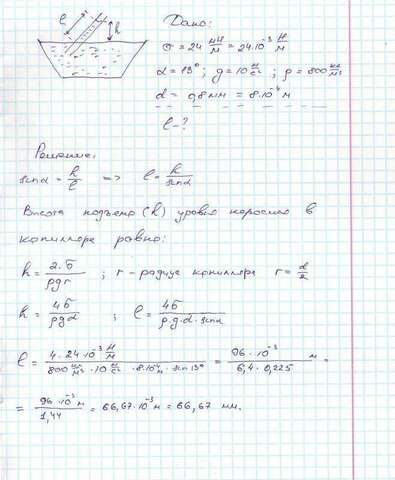 l
h
Дано:
σ = 24 мН/м = 24·10⁻³ Н/м
α = 13°; g = 10 м/с²; ρ = 800 кг/м³
d = 0,8 мм = 8·10⁻⁴ м
l - ?
Решение:
sinα = h/l => l = h/sinα
Высота подъема (h) уровня керосина в
капилляре равно:
h = 2·σ/ρgr ; r - радиус капилляра r = d/2
h = 4σ/ρgd ; l = 4σ/ρ·g·d·sinα
l = 4·24·10⁻³ Н/м / 800 кг/м³ ·10 м/с² ·8·10⁻⁴ м ·sin13° = 96·10⁻³/6,4·0,225 м =
= 96·10⁻³ м/1,44 = 66,67·10⁻³ м = 66,67 мм.